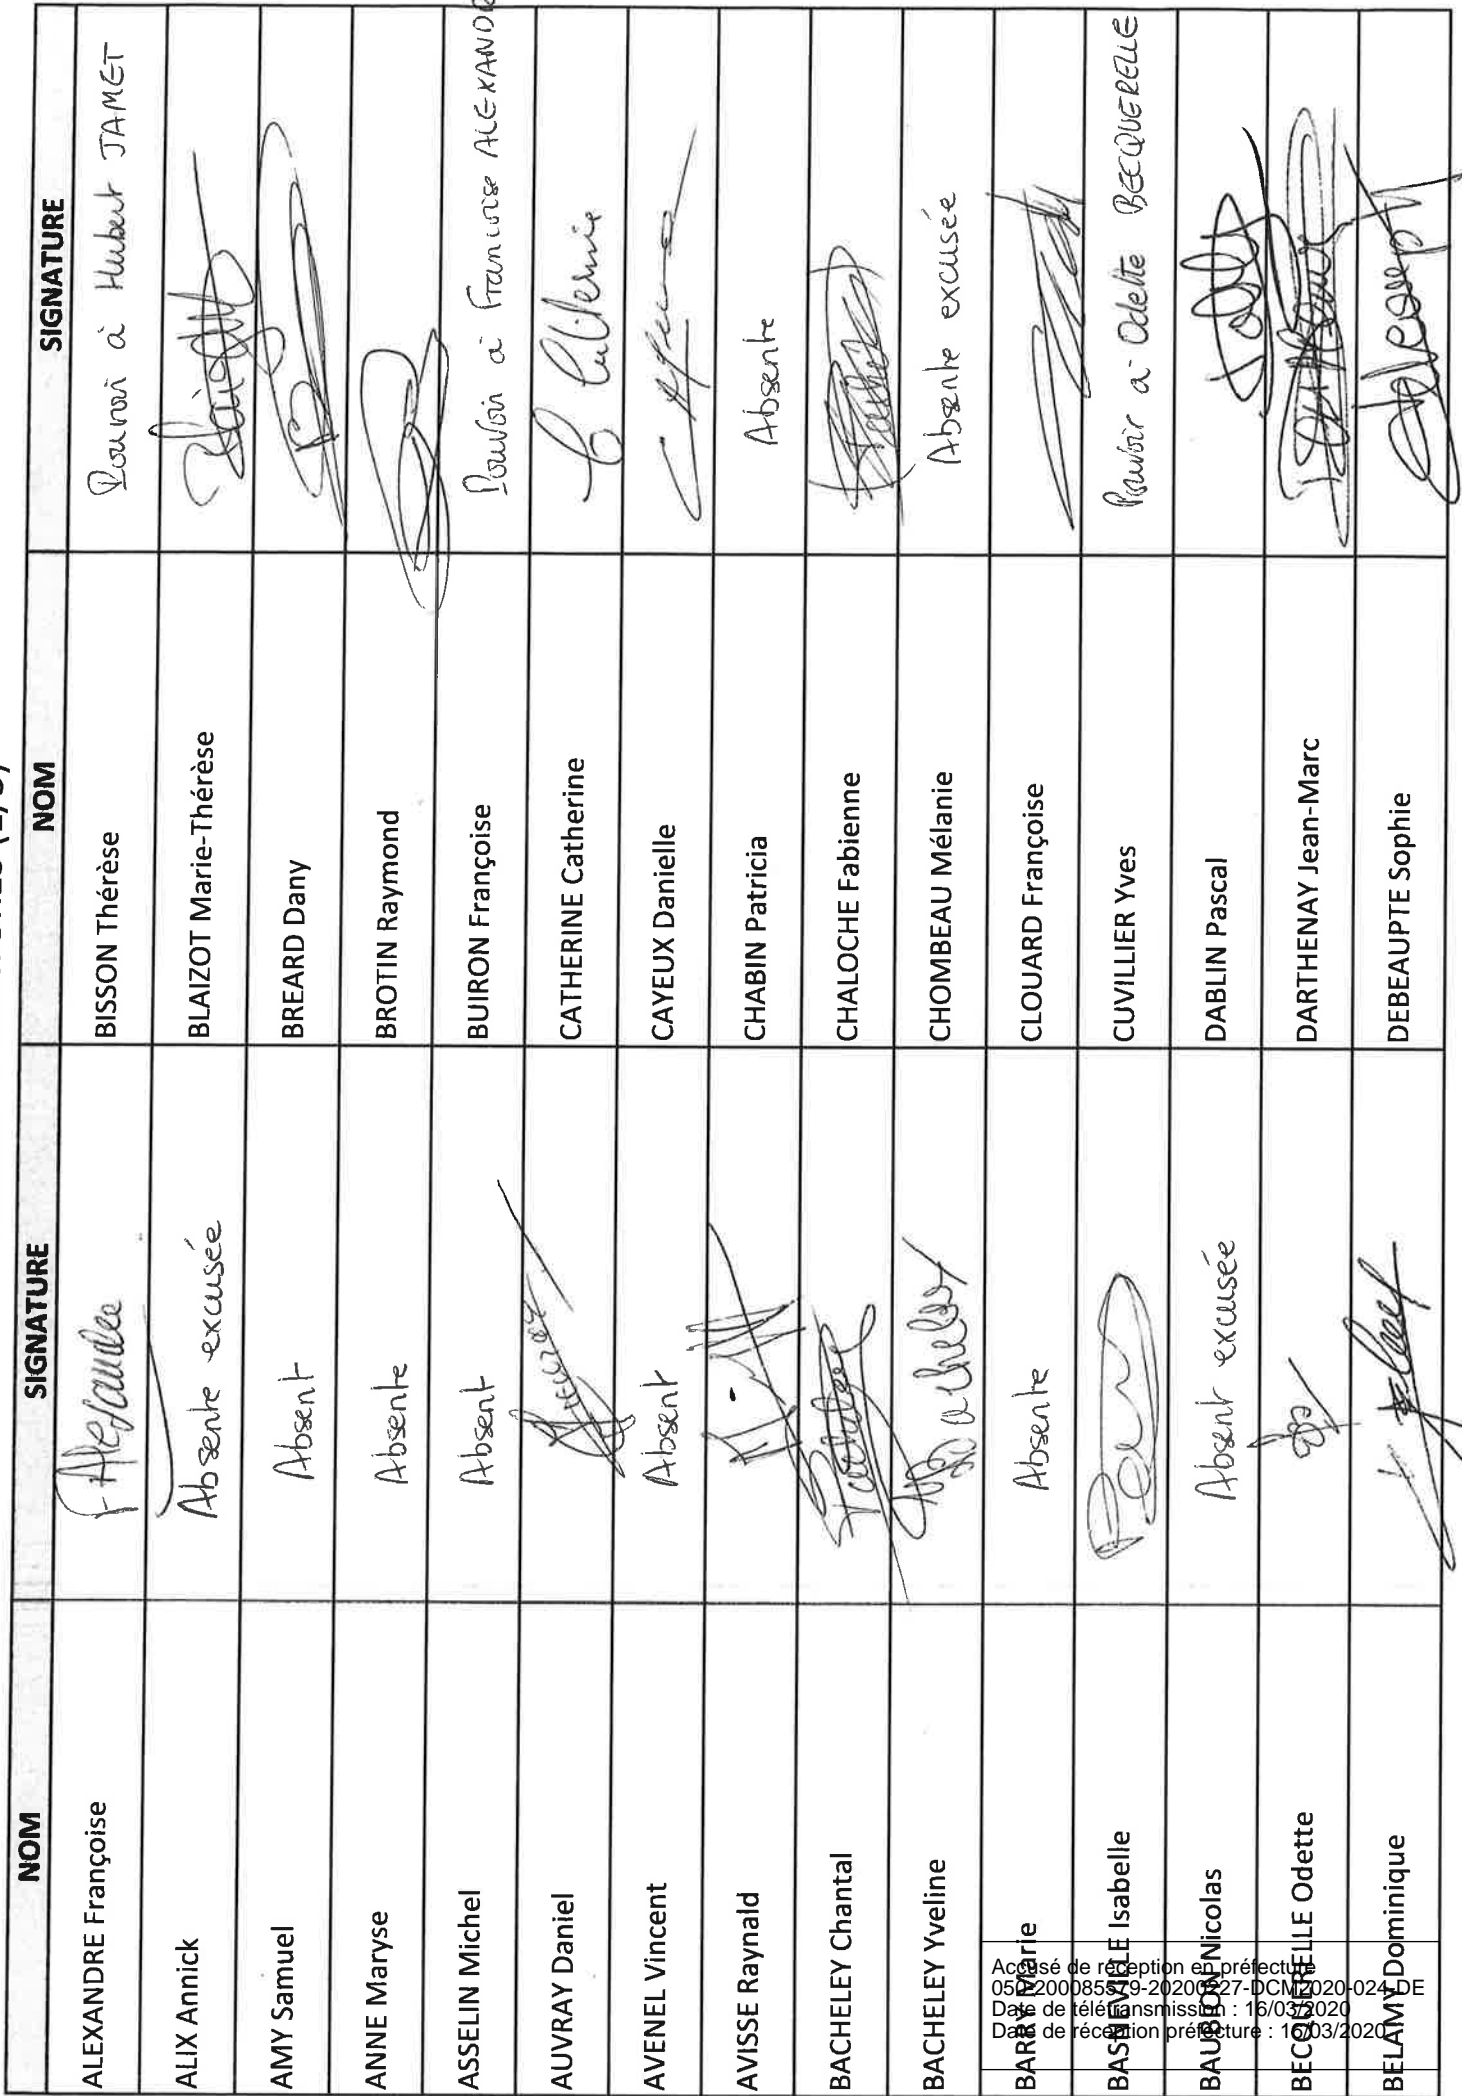 NOM SIGNATURE NOM SIGNATURE
ALEXANDRE Françoise F. Alexandre BISSON Thérèse Pouvoir à Hubert JAMET
ALIX Annick Absente excusée BLAIZOT Marie-Thérèse
AMY Samuel Absent BREARD Dany
ANNE Maryse Absente BROTIN Raymond
ASSELIN Michel Absent BUIRON Françoise Pouvoir à Francoise ALEXANDR
AUVRAY Daniel CATHERINE Catherine
AVENEL Vincent Absent CAYEUX Danielle
AVISSE Raynald CHABIN Patricia Absente
BACHELEY Chantal CHALOCHE Fabienne
BACHELEY Yveline CHOMBEAU Mélanie Absente excusée
BARRY Marie Absente CLOUARD Françoise
BASNEVILLE Isabelle CUVILLIER Yves Pouvoir à Odette BECQUERELLE
BAUBION Nicolas Absent excusée DABLIN Pascal
BECQUERELLE Odette DARTHENAY Jean-Marc
BELAMY Dominique DEBEAUPTE Sophie
Accusé de réception en préfecture
050-200085579-20200227-DCM2020-024-DE
Date de télétransmission : 16/03/2020
Date de réception préfecture : 16/03/2020